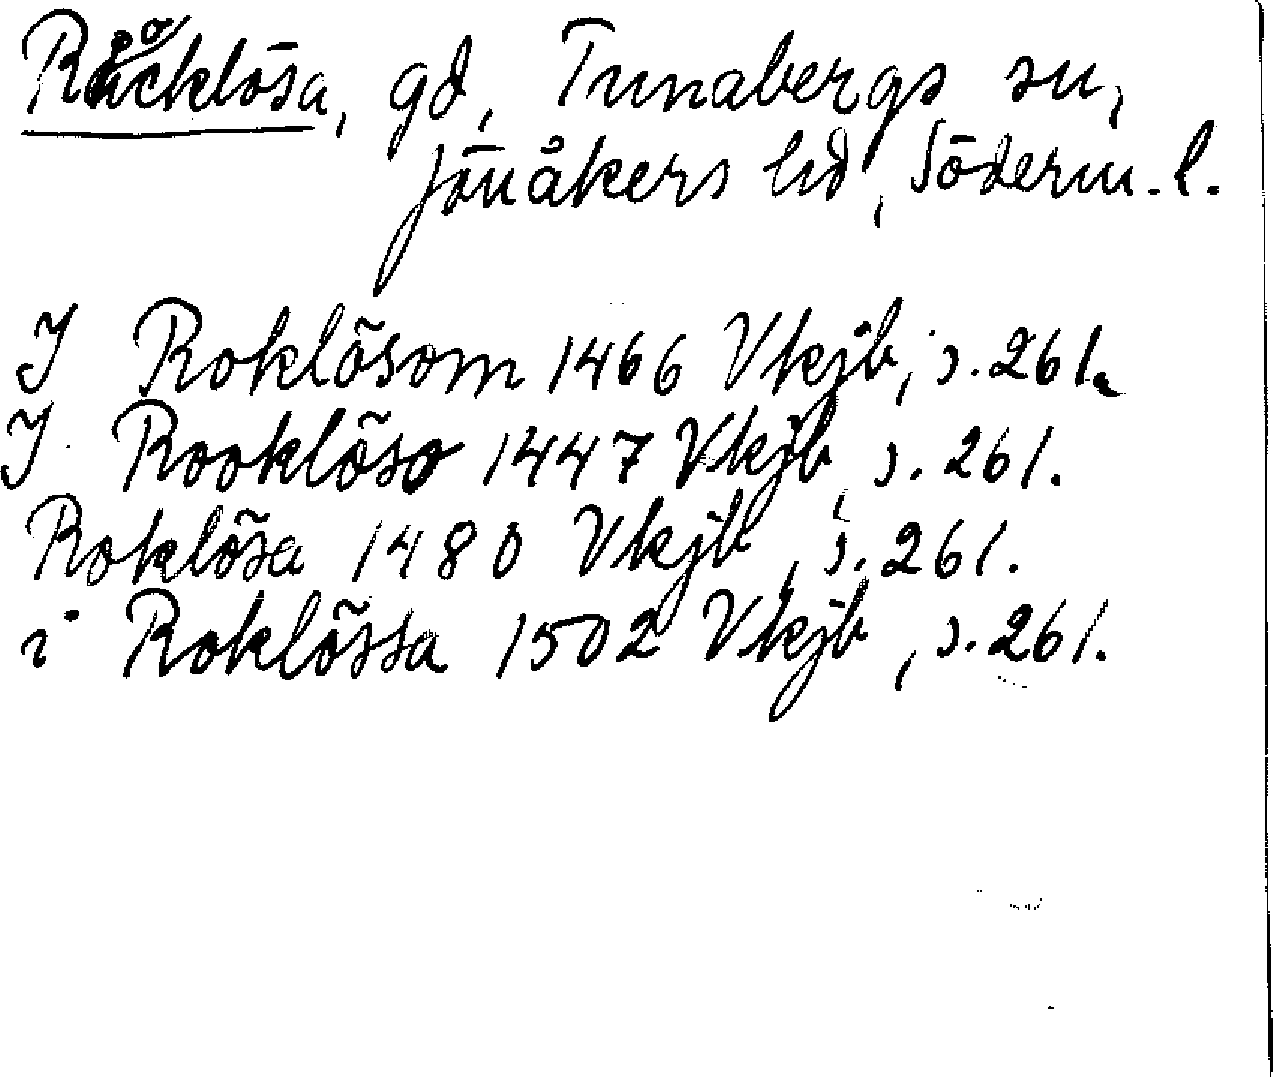 Råcklösa, gd, Tunabergs sn,
Jönåkers hd, Söderm. l.
I Roklösom 1466 Vkjb, s. 261.
I Rooklöso 1447 Vkjb, s. 261.
Roklösa 1480 Vkjb, s. 261.
i Roklössa 1502 Vkjb, s. 261.